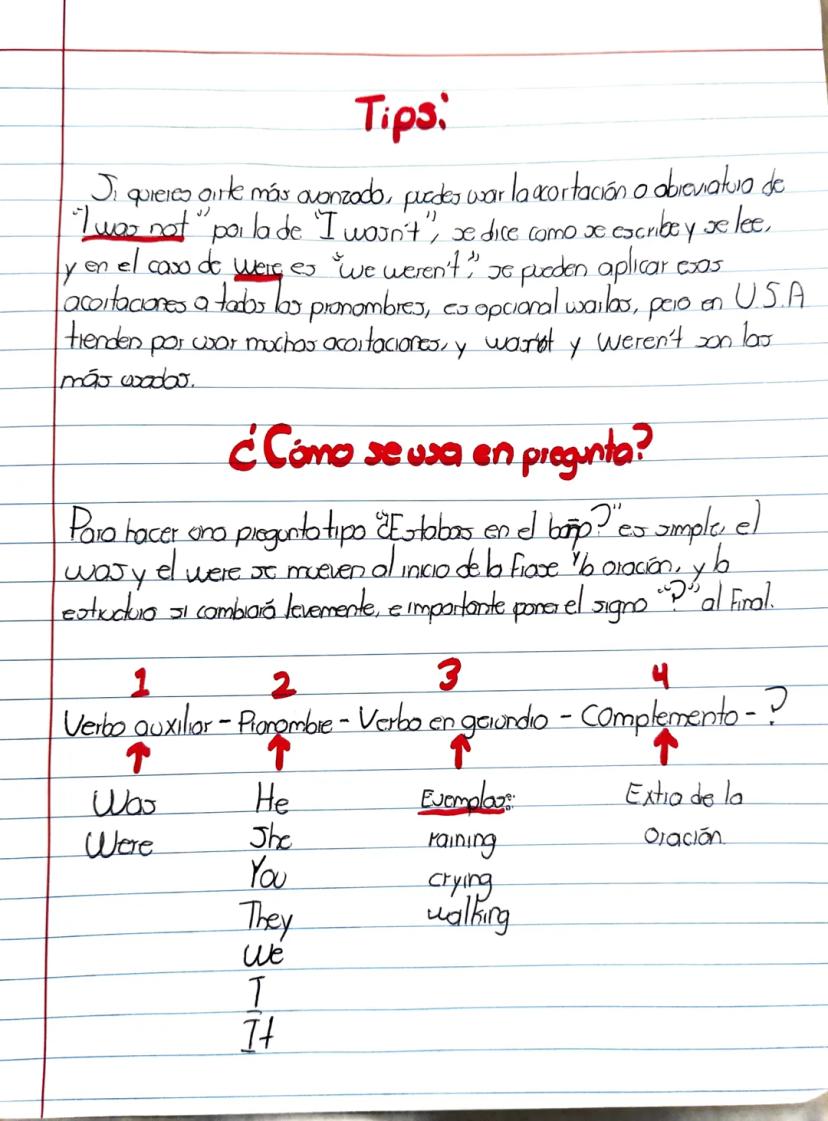 Tips:
Si quieres oirte más avanzado, puedes usar la acortación o abreviatura de
"I was not" por la de "I wasn't", se dice como se escribe y se lee,
y en el caso de were es "we weren't", se pueden aplicar esas
acortaciones a todos los pronombres, es opcional usarlas, pero en U.S.A
tienden por usar muchas acortaciones, y wasn't y weren't son las
más usadas.
¿Cómo se usa en pregunta?
Para hacer una pregunta tipo "¿Estabas en el baño?" es simple, el
was y el were se mueven al inicio de la frase y la oración, y la
estructura si cambiará levemente, e importante poner el signo "?" al final.
1 2 3 4
Verbo auxiliar - Pronombre - Verbo en gerundio - Complemento - ?
Was He Ejemplos: Extra de la
Were She raining oración
You crying
They walking
We
I
It